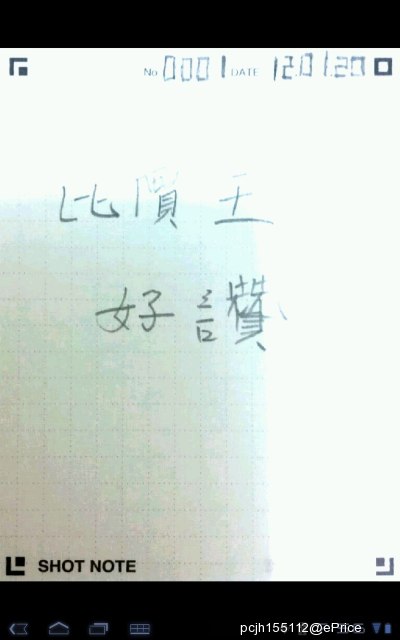 No 0001 DATE 12.01.20
比價王
好讚
SHOT NOTE
pcjh155112@ePrice